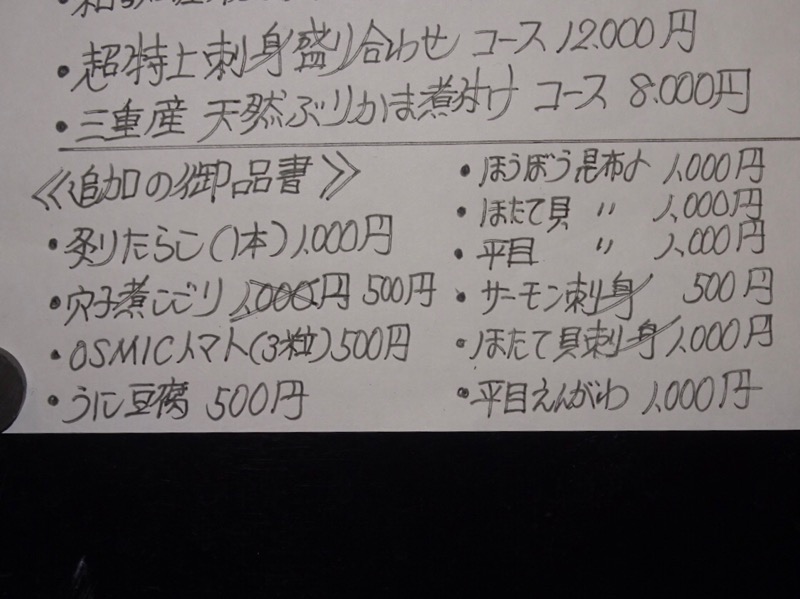 ・超特上刺身盛り合わせ コース 12.000円
・三重産 天然ぶりかま煮付け コース 8.000円
≪追加の御品書≫
・炙りたらこ(1本)1,000円
・穴子煮こごり 1,000円 500円
・OSMICトマト(3粒)500円
・うに豆腐 500円
・ほうぼう昆布〆 1,000円
・ほたて貝 〃 1,000円
・平目 〃 1,000円
・サーモン刺身 500円
・ほたて貝刺身 1,000円
・平目えんがわ 1,000円